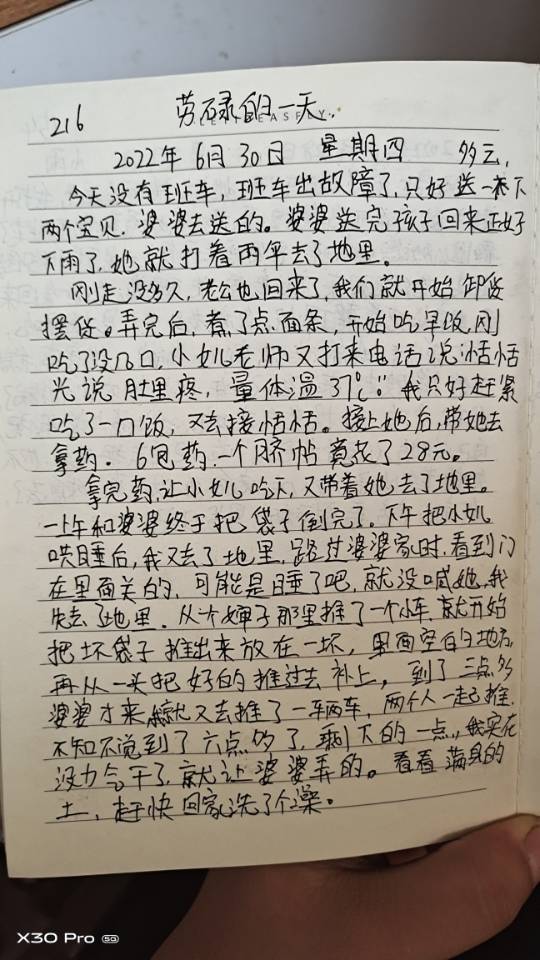 216
劳碌的一天
2022年6月30日 星期四 多云,
今天没有班车,班车出故障了,只好送一下
两个宝贝.婆婆去送的。婆婆送完孩子回来正好
下雨了,她就打着雨伞去了地里.
刚走没多久,老公也回来了,我们就开始卸货
摆货。弄完后,煮了点面条,开始吃早饭,刚
吃了没几口,小女儿老师又打来电话说恬恬
光说肚里疼,量体温37℃ 我只好赶紧
吃了一口饭,又去接恬恬。接上她后,带她去
拿药.6包药,一个脐帖竟花了28元。
拿完药,让小女儿吃下,又带着她去了地里。
一上午和婆婆终于把袋子倒完了.下午把小女儿
哄睡后,我又去了地里,路过婆婆家时,看到门
在里面关的,可能是睡了吧,就没喊她,我
先去了地里.从大婶子那里推了一个小车,就开始
把坏袋子推出来放在一坏,里面空白的地方
再从一头把好的推过去补上,到了三点多
婆婆才来,就又去推了一车两车,两个人一起推.
不知不觉到了六点多了,剩下的一点,我实在
没力气干了,就让婆婆弄的。看看满身的
土,赶快回家洗了个澡。
X30 Pro 5G